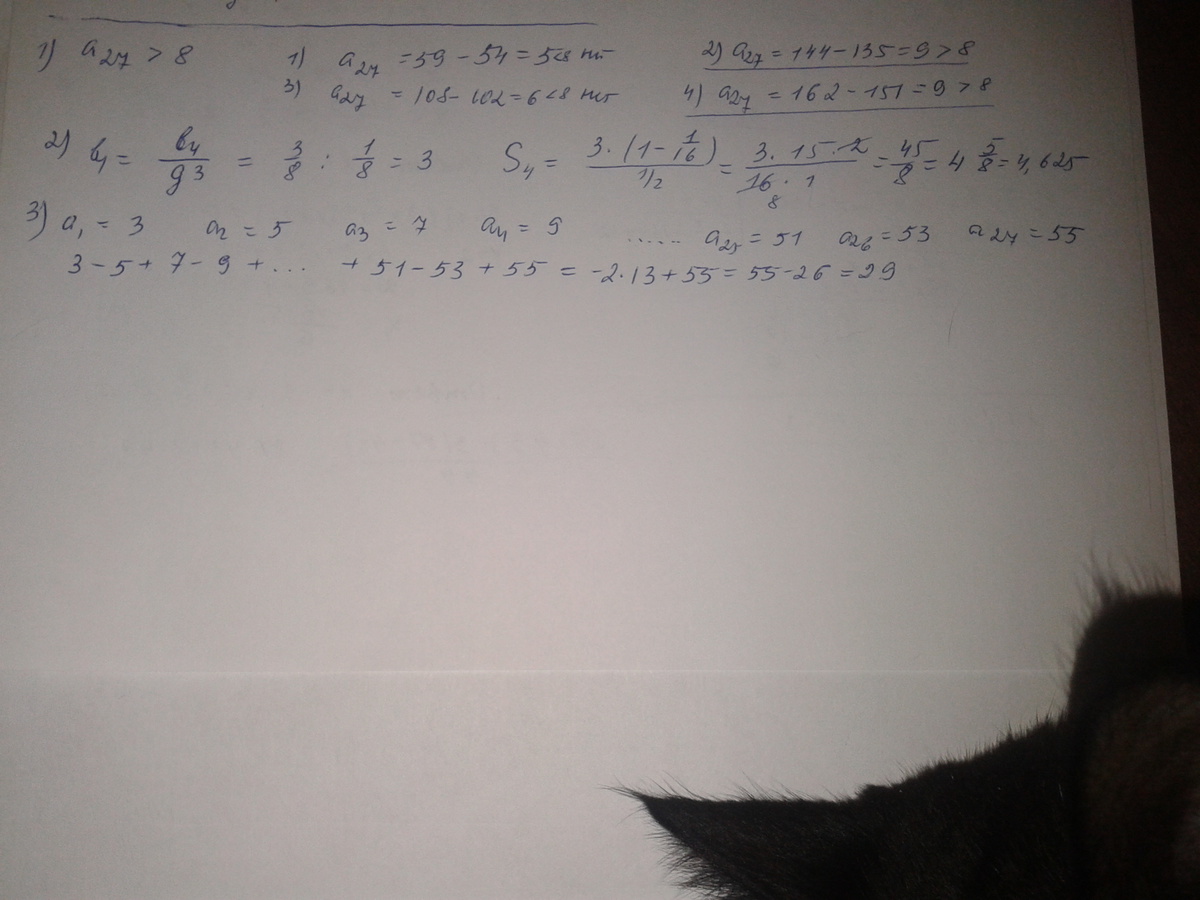 1) a₂₇ > 8 1) a₂₇ = 59 - 54 = 5 < 8 нет 2) a₂₇ = 144 - 135 = 9 > 8
3) a₂₇ = 108 - 102 = 6 < 8 нет 4) a₂₇ = 162 - 151 = 9 > 8
2) b₁ = b₄/g³ = 3/8 : 1/8 = 3 S₄ = 3·(1 - 1/16)/1/2 = 3·15·2/16·1 8 = 45/8 = 4 5/8 = 4,625
3) a₁ = 3 a₂ = 5 a₃ = 7 a₄ = 9 ...... a₂₅ = 51 a₂₆ = 53 a₂₇ = 55
3 - 5 + 7 - 9 + ... + 51 - 53 + 55 = -2·13 + 55 = 55 - 26 = 29